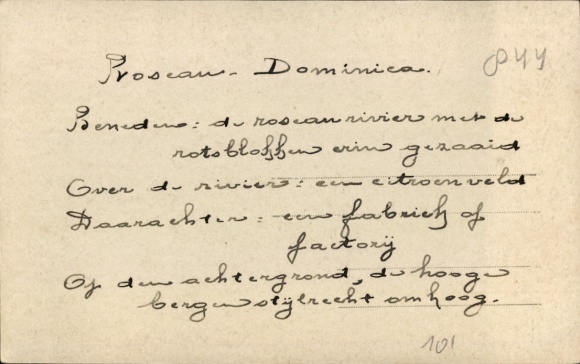 Roseau - Dominica.
844
Beneden: de roseaurivier met de
rotsblokken erin gezaaid
Over de rivier: een citroenveld
Daarachter: een fabriek of
factorij
Op den achtergrond, de hooge
bergen stijlrecht omhoog.
101